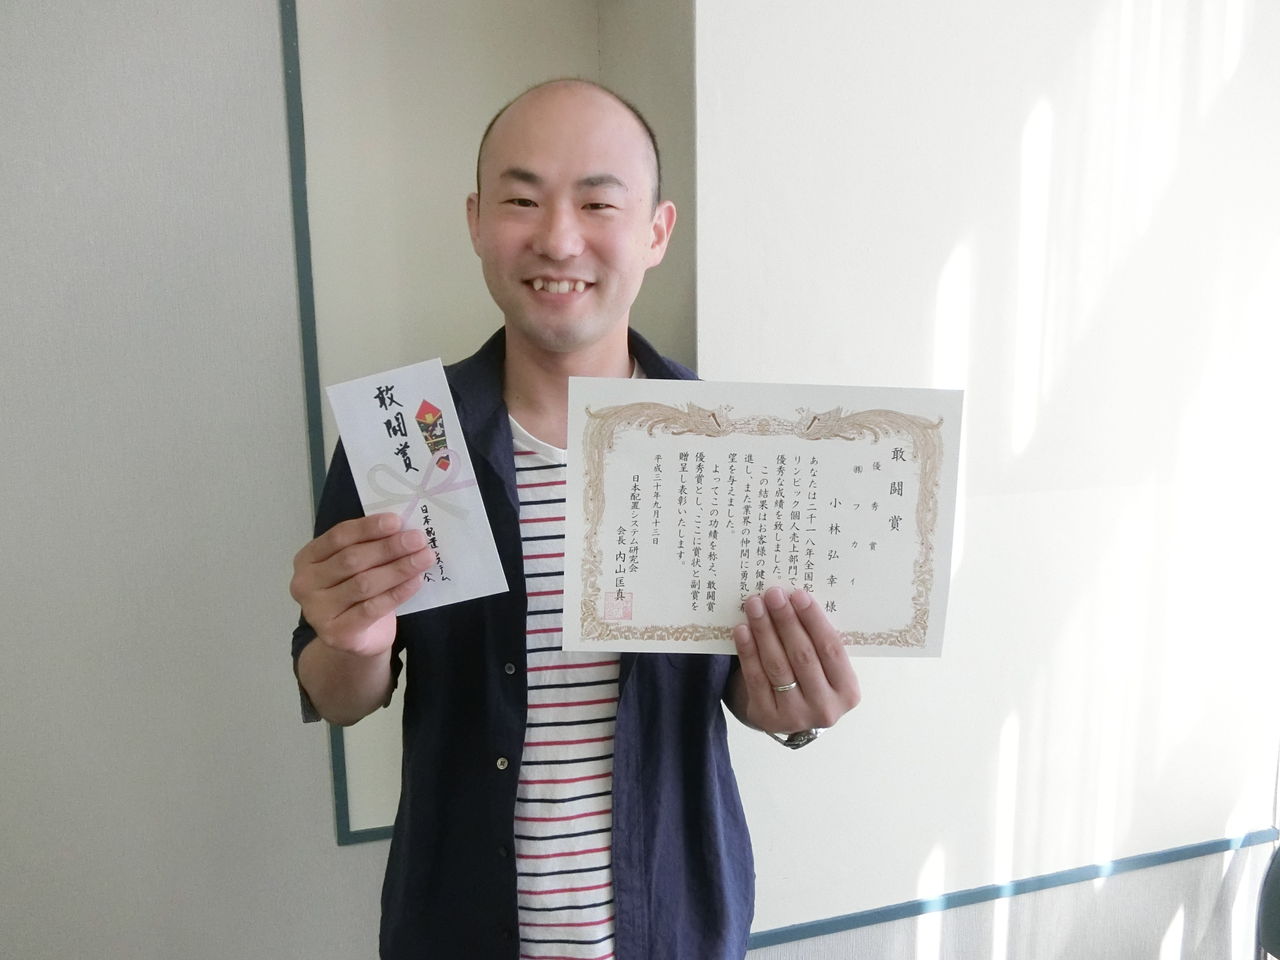 敢闘賞
日本配置システム
敢闘賞
優秀賞
㈱フカイ
小林弘幸様
あなたは二千一八年全国配
リンピック個人売上部門で
優秀な成績を致しました。
この結果はお客様の健康
進し、また業界の仲間に勇気と
望を与えました。
よってこの功績を称え、敢闘賞
優秀賞とし、ここに賞状と副賞を
贈呈し表彰いたします。
平成三十年九月十三日
日本配置システム研究会
会長 内山匡真